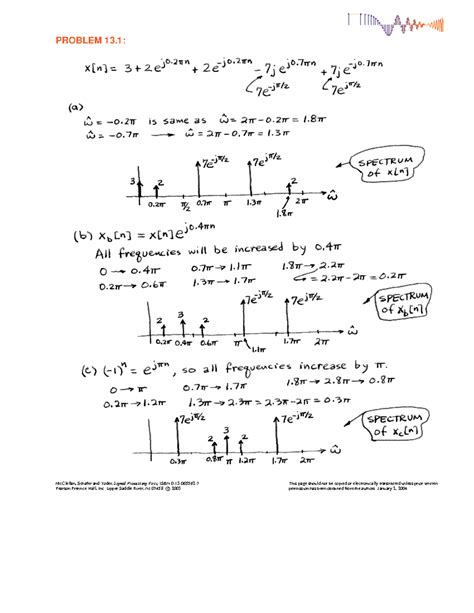 PROBLEM 13.1:
x[n] = 3 + 2e^{j0.2πn} + 2e^{-j0.2πn} - 7j e^{j0.7πn} + 7j e^{-j0.7πn}
7e^{-jπ/2} 7e^{jπ/2}
(a)
ω̂ = -0.2π is same as ω̂ = 2π - 0.2π = 1.8π
ω̂ = -0.7π → ω̂ = 2π - 0.7π = 1.3π
3 2 7e^{-jπ/2} 7e^{jπ/2} 2 SPECTRUM of x[n]
0.2π π/2 0.7π π 1.3π 1.8π 2π ω̂
(b) x_b[n] = x[n]e^{j0.4πn}
All frequencies will be increased by 0.4π
0 → 0.4π 0.7π → 1.1π 1.8π → 2.2π
0.2π → 0.6π 1.3π → 1.7π = 2.2π - 2π = 0.2π
2 3 2 7e^{-jπ/2} 7e^{jπ/2} SPECTRUM of x_b[n]
0.2π 0.4π 0.6π π 1.1π 1.7π 2π ω̂
(c) (-1)^n = e^{jπn}, so all frequencies increase by π.
0 → π 0.7π → 1.7π 1.8π → 2.8π → 0.8π
0.2π → 1.2π 1.3π → 2.3π = 2.3π - 2π = 0.3π
7e^{jπ/2} 2 3 2 7e^{-jπ/2} SPECTRUM of x_c[n]
0.3π 0.8π π 1.2π 1.7π 2π ω̂
McClellan, Schafer and Yoder, Signal Processing First, ISBN 0-13-065562-7.
Prentice Hall, Upper Saddle River, NJ 07458. © 2003
This page should not be copied or electronically transmitted unless prior written
permission has been obtained from the authors. January 5, 2004